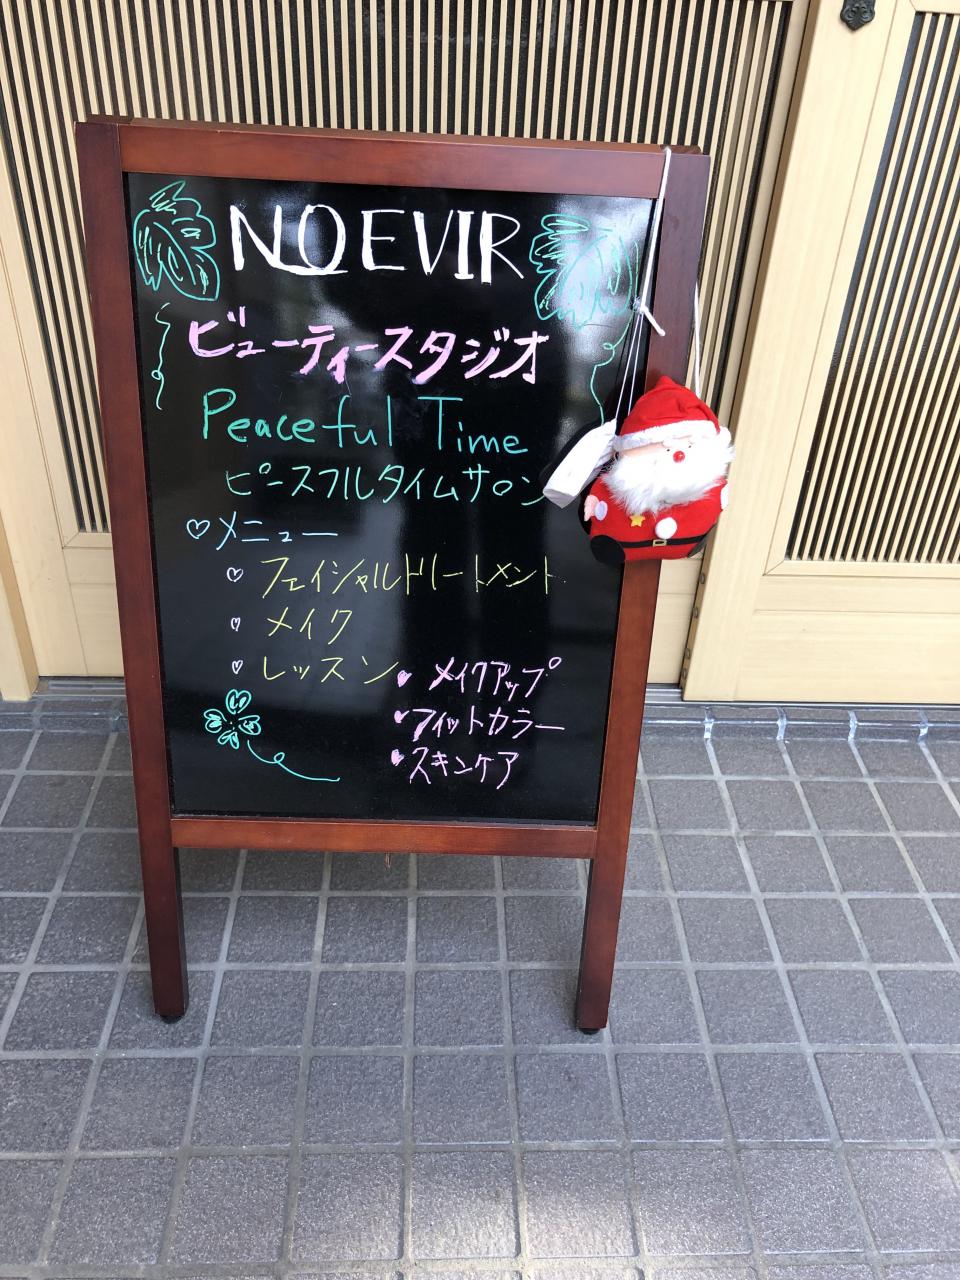 NOEVIR
ビューティースタジオ
Peaceful Time
ピースフルタイムサロン
♡メニュー
♡ フェイシャルトリートメント
♡ メイク
♡ レッスン
♥ メイクアップ
♥ フィットカラー
♥ スキンケア